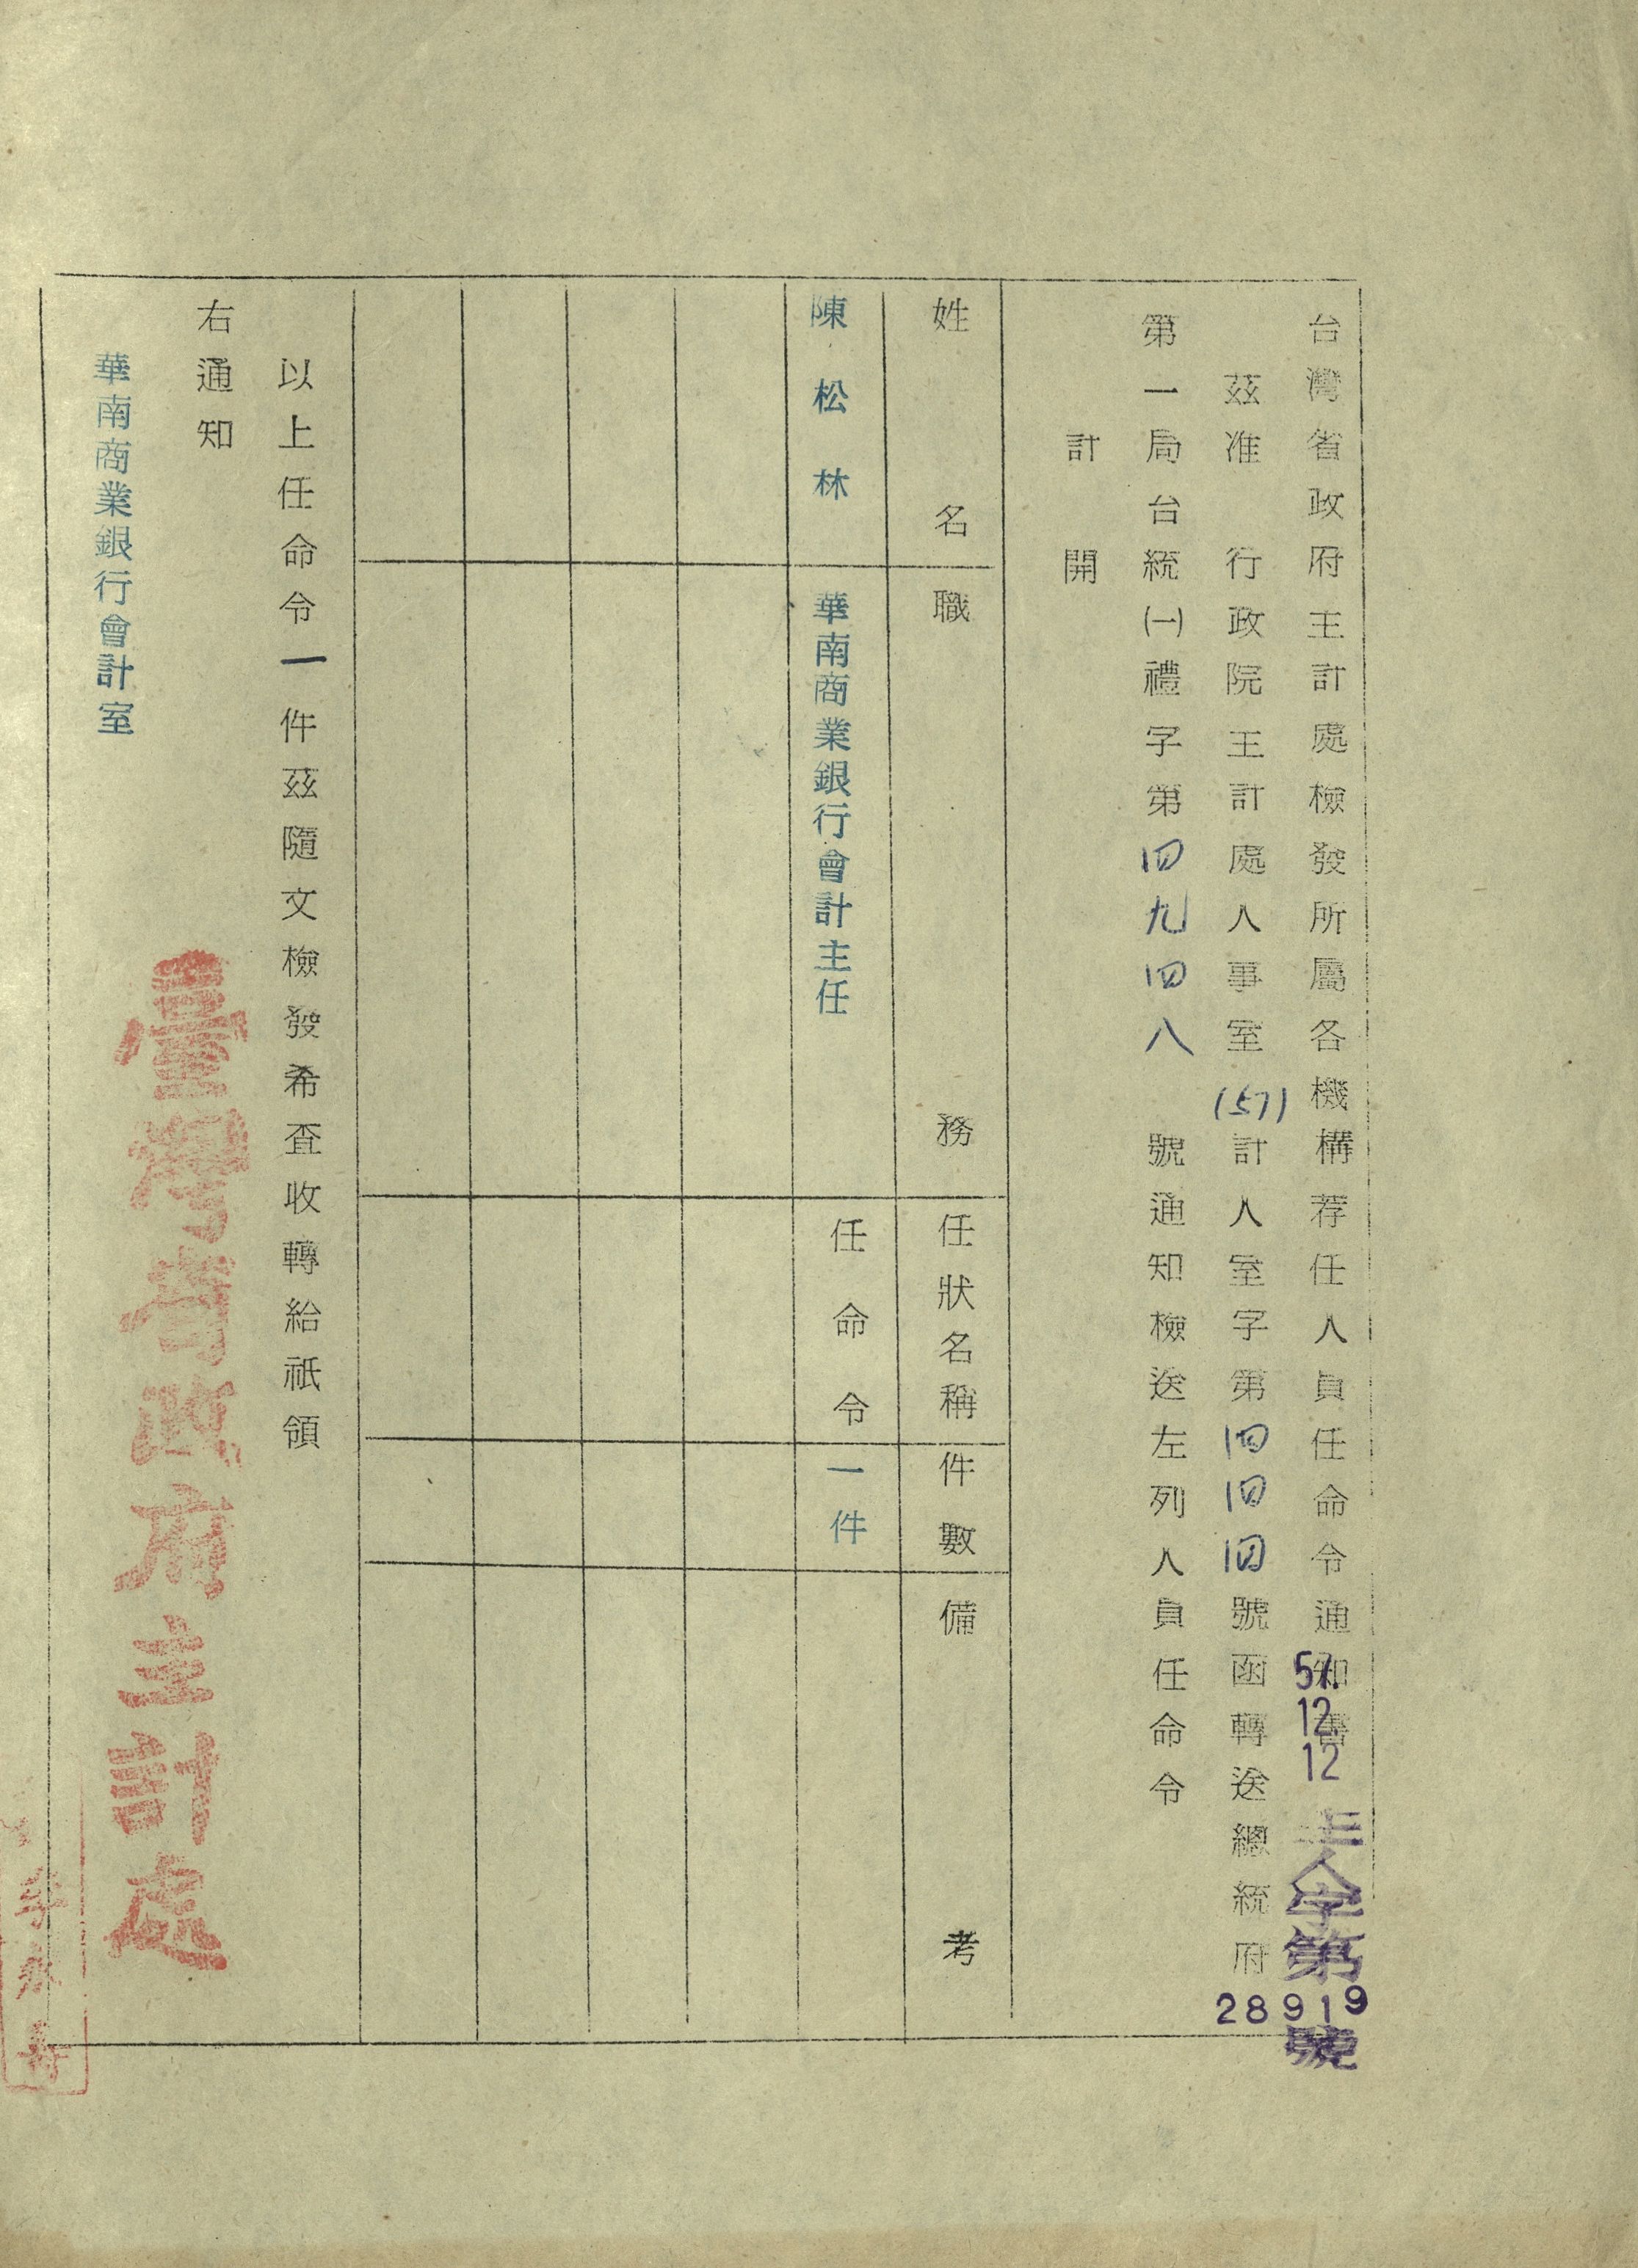 台灣省政府主計處檢發所屬各機構荐任人員任命令通知書
57.12.12
主人字第28919號
茲准 行政院主計處人事室(57)計人室字第四四四號函轉送總統府
第一局台統㈠禮字第四九四八 號通知檢送左列人員任命令
計 開
姓 名 職 務 任狀名稱 件數 備 考
陳松林 華南商業銀行會計主任 任命令 一件
以上任命令一件茲隨文檢發希查收轉給祇領
右通知
華南商業銀行會計室
臺灣省政府主計處